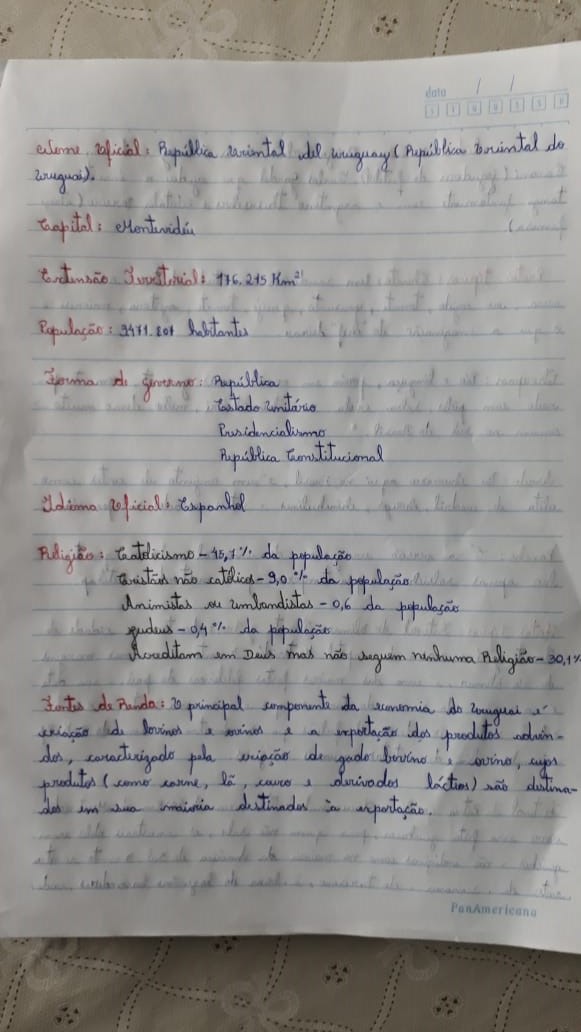 data / /
Nome Oficial: República Oriental del Uruguay (República Oriental do
Uruguai).
Capital: Montevidéu
Extensão Territorial: 176.215 Km²
População: 3471.201 habitantes
Forma de Governo: República
Estado Unitário
Presidencialismo
República Constitucional
Idioma Oficial: Espanhol
Religião: Catolicismo - 45,7% da população
Cristãos não católicos - 9,0% da população
Animistas ou umbandistas - 0,6 da população
Judeus - 0,4% da população
Acreditam em Deus mas não seguem nenhuma Religião - 30,1%
Fontes de Renda: O principal componente da economia do Uruguai é
criação de bovinos e ovinos e a exportação dos produtos advin-
dos, caracterizado pela criação de gado bovino e ovino, cujos
produtos (como carne, lã, couro e derivados lácteos) são destina-
dos em sua maioria destinados à exportação.
PanAmericana